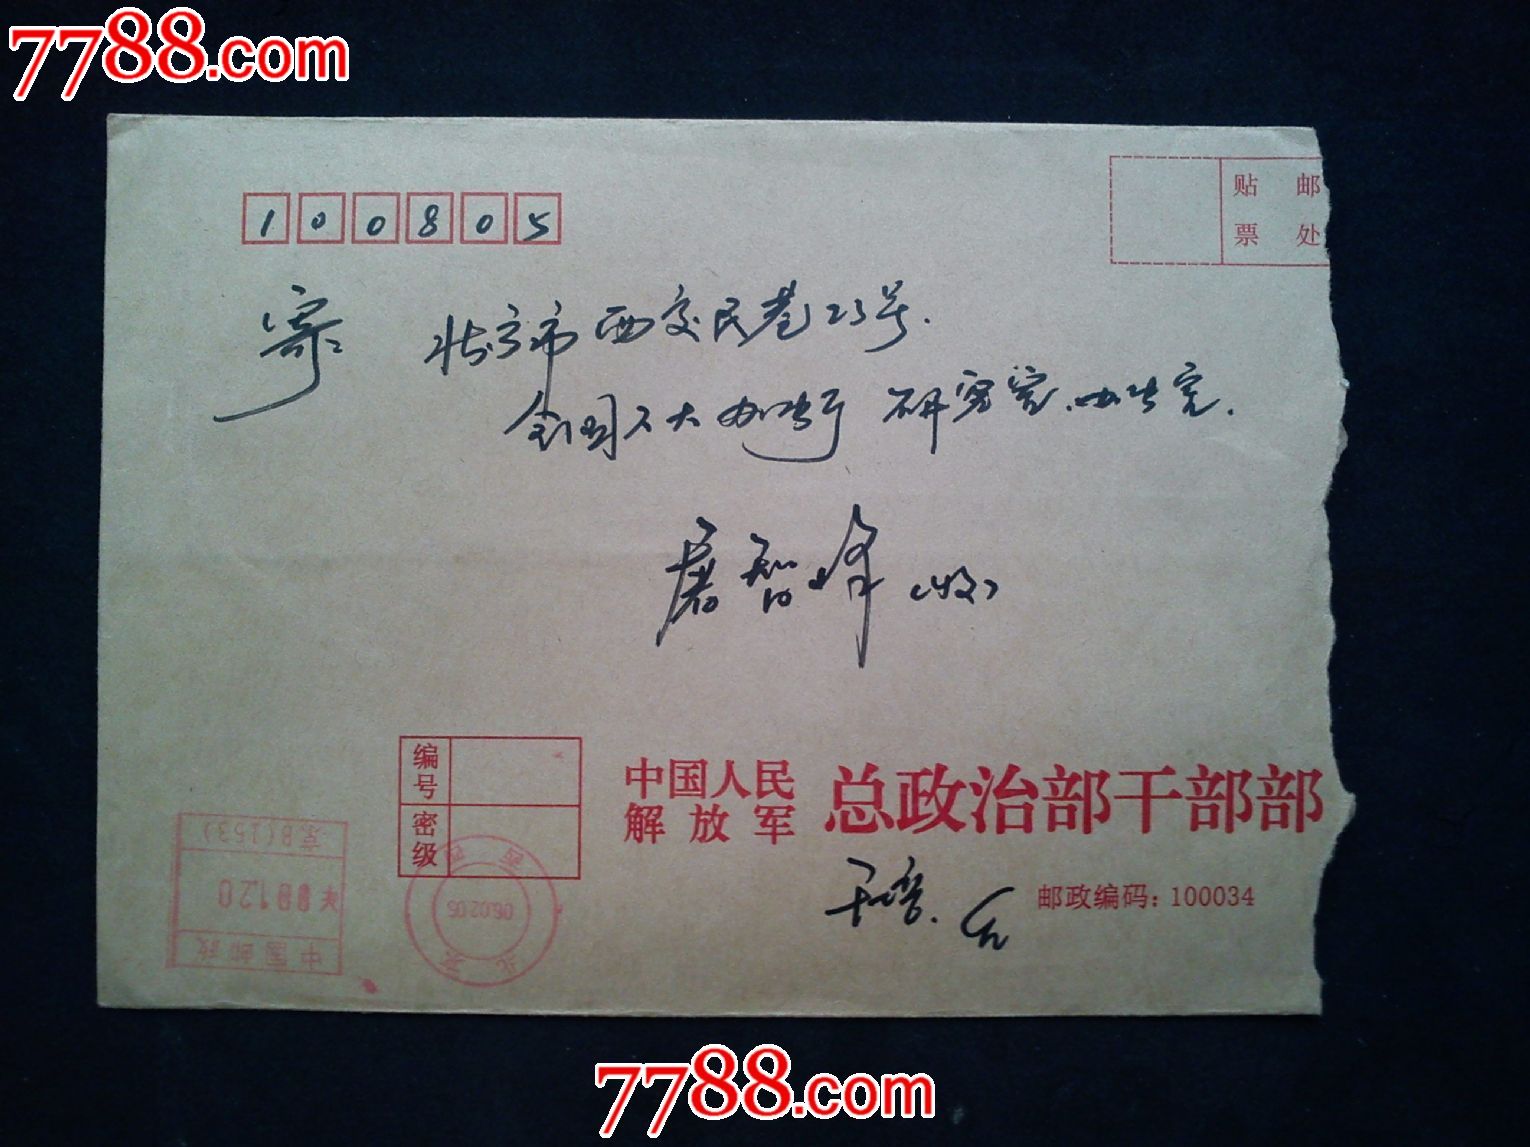 7788.com
100805
贴 邮
票 处
寄 北京市西交民巷23号.
全国人大办公厅 研究室.办公室.
屠智峰(收)
编号
密级
中国人民
解放军 总政治部干部部
邮政编码：100034
京B(153)
0120
中国邮政
北京
06.02.05
7788.com